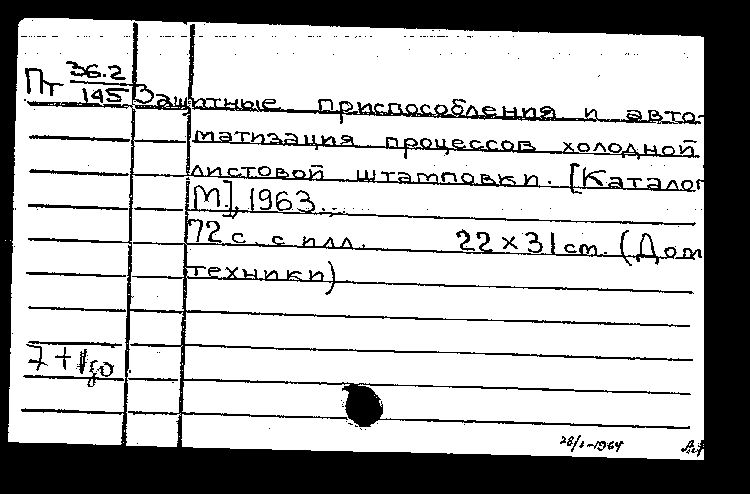 Пт 36.2/145 Защитные приспособления и авто-
матизация процессов холодной
листовой штамповки. [Каталог
М], 1963.
72 с. с илл. 22 × 31 cm. (Дом
техники)
7 +
28/I-1964